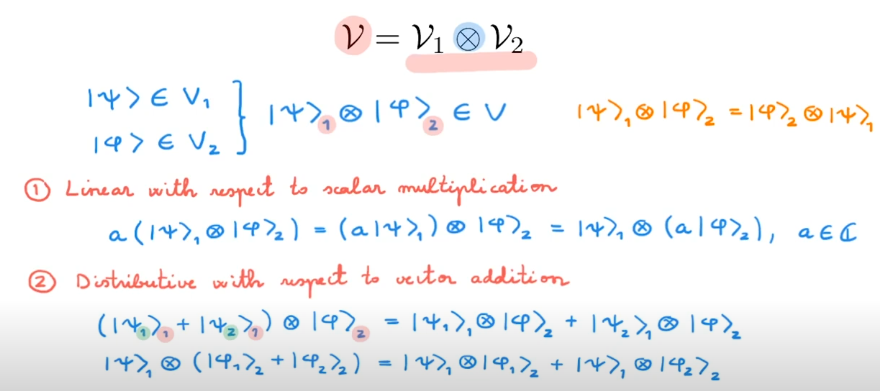 𝒱 = 𝒱₁ ⊗ 𝒱₂
|ψ⟩ ∈ V₁
|φ⟩ ∈ V₂
} |ψ⟩₁ ⊗ |φ⟩₂ ∈ V
|ψ⟩₁ ⊗ |φ⟩₂ = |φ⟩₂ ⊗ |ψ⟩₁
① Linear with respect to scalar multiplication
a(|ψ⟩₁ ⊗ |φ⟩₂) = (a|ψ⟩₁) ⊗ |φ⟩₂ = |ψ⟩₁ ⊗ (a|φ⟩₂), a ∈ ℂ
② Distributive with respect to vector addition
(|ψ₁⟩₁ + |ψ₂⟩₁) ⊗ |φ⟩₂ = |ψ₁⟩₁ ⊗ |φ⟩₂ + |ψ₂⟩₁ ⊗ |φ⟩₂
|ψ⟩₁ ⊗ (|φ₁⟩₂ + |φ₂⟩₂) = |ψ⟩₁ ⊗ |φ₁⟩₂ + |ψ⟩₁ ⊗ |φ₂⟩₂